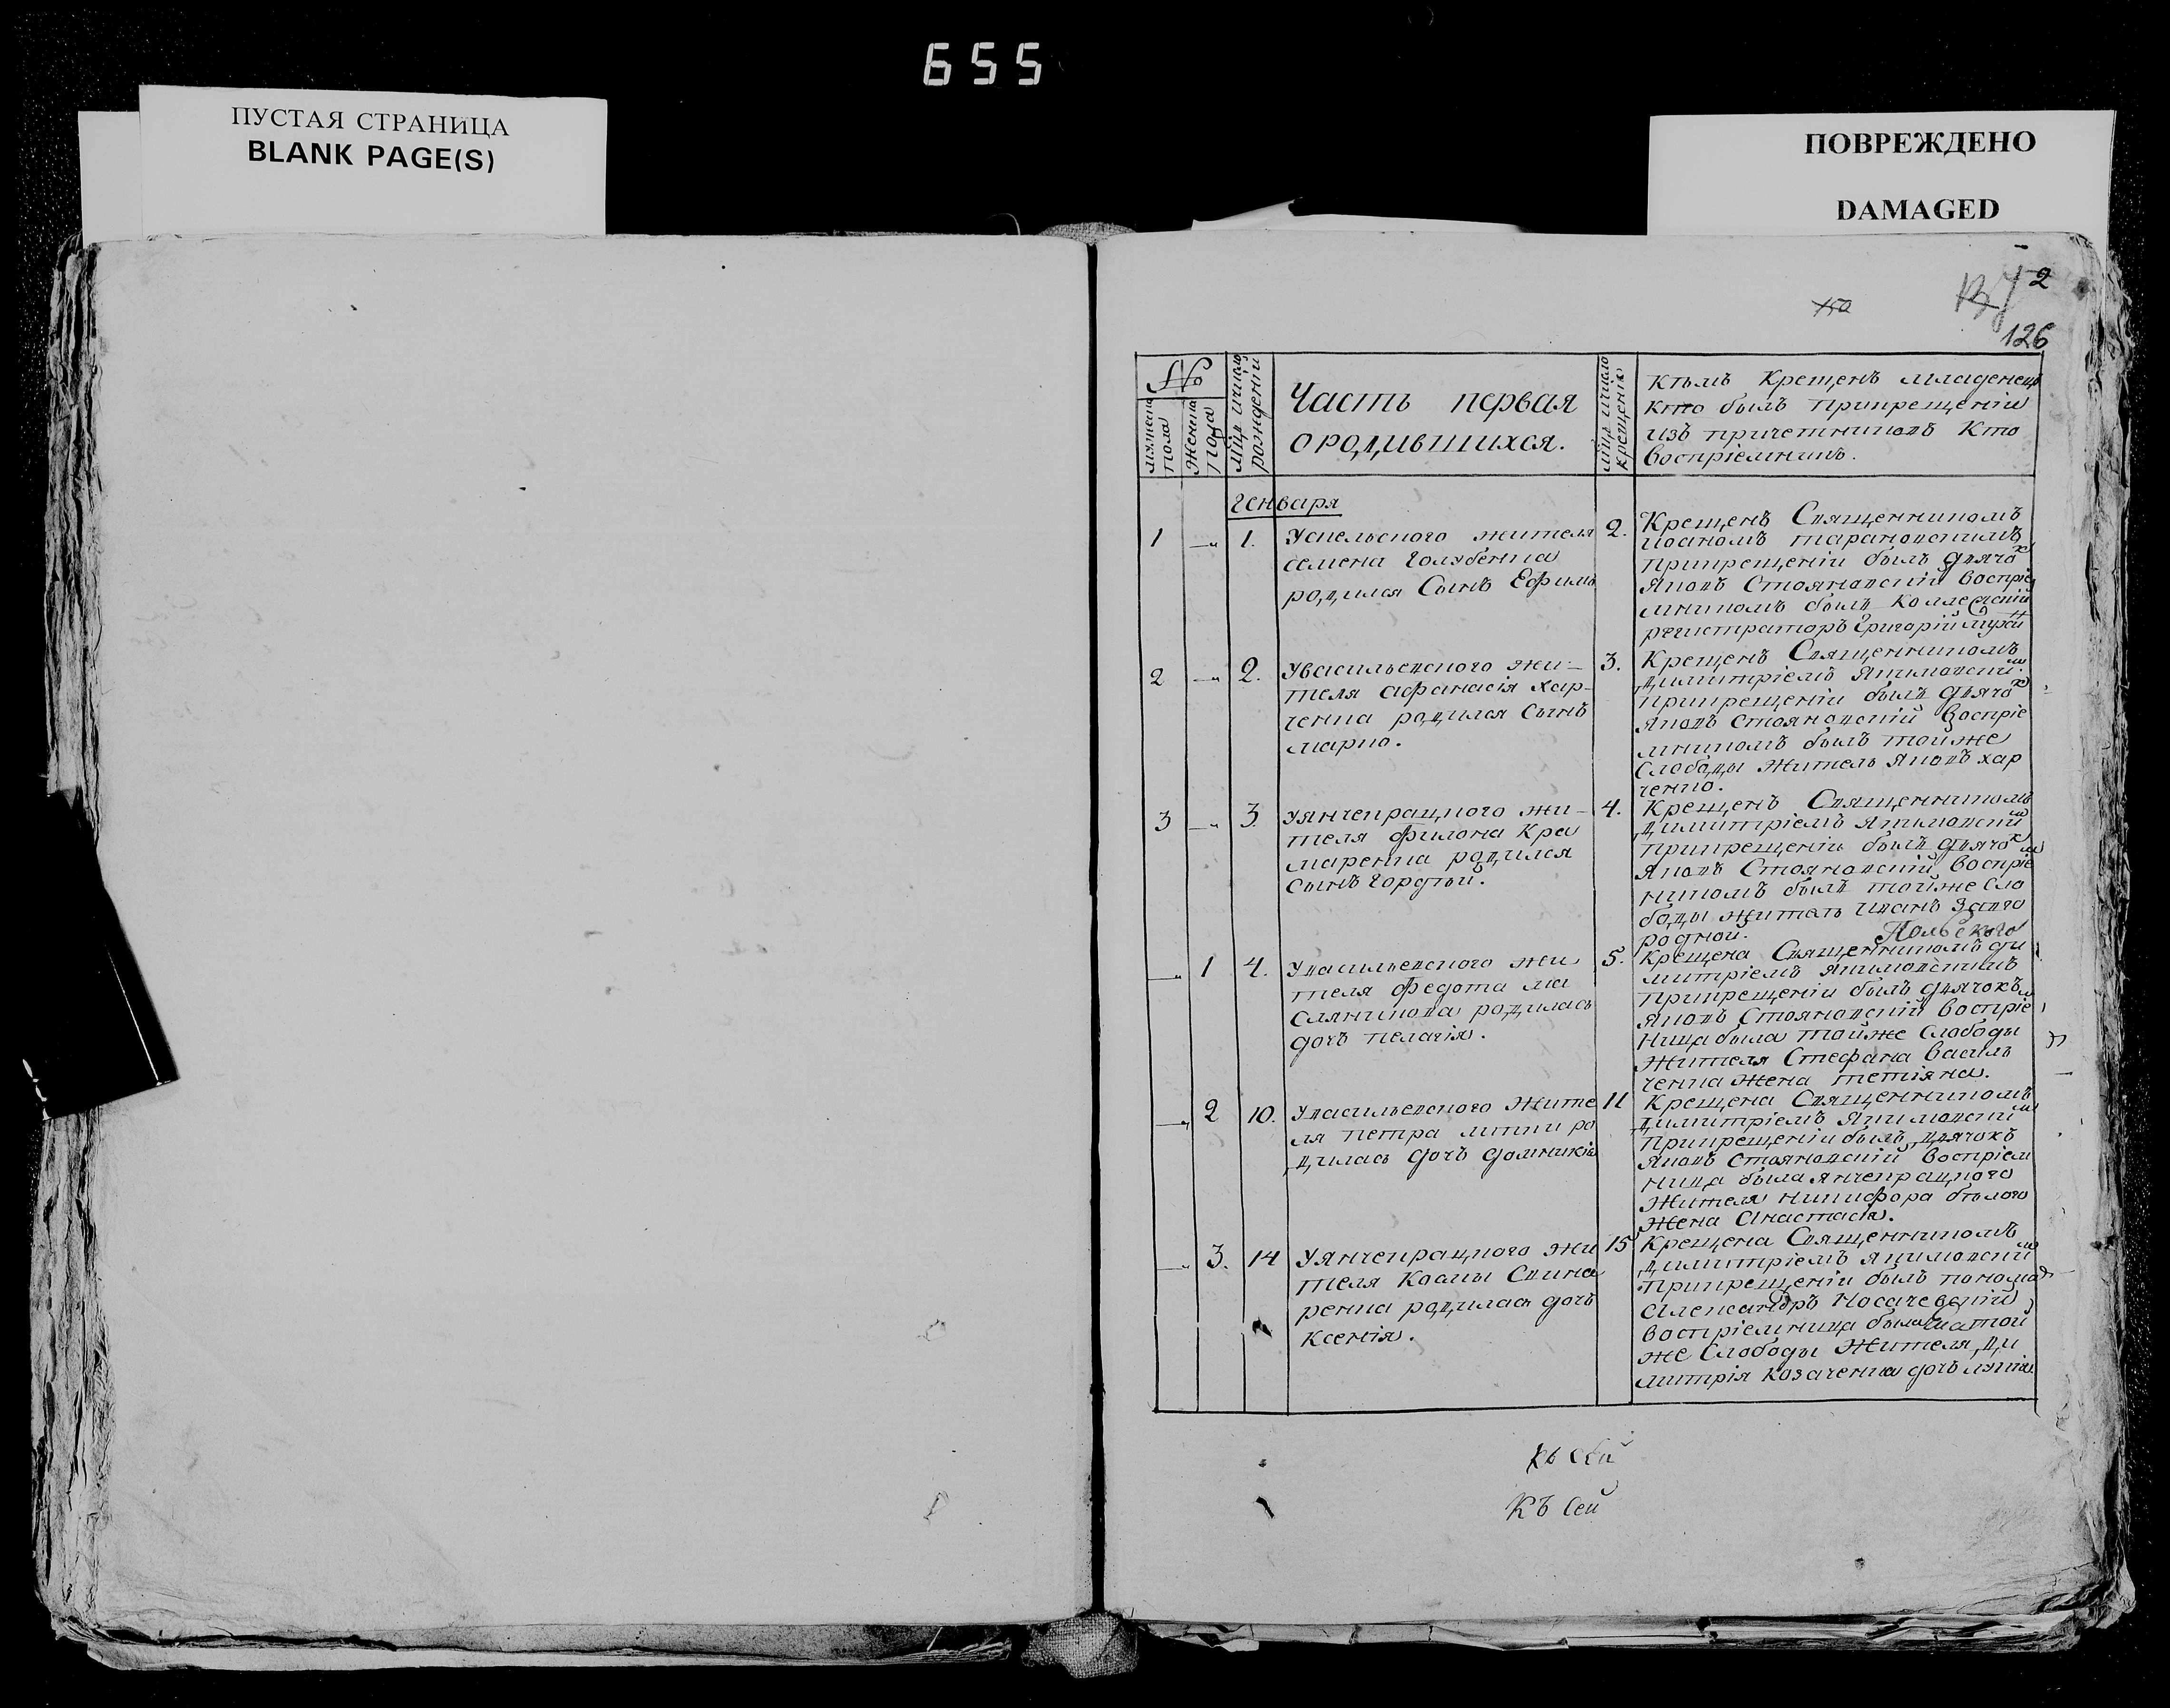 655
ПУСТАЯ СТРАНИЦА
BLANK PAGE(S)
ПОВРЕЖДЕНО
DAMAGED
2
126
№
мужеска пола
женска пола
мцъ ичисло рожденіи
Часть первая
ородившихся.
мцъ ичисло крещенія
Кѣмъ Крещенъ младенецъ
кто былъ прикрещеніи
изъ причетниковъ Кто
воспріемникъ.
Генваря
1 1. 2.
Успелвского жителя
семена Голубенка
родился Сынъ Ефимъ
Крещенъ Священникомъ
иоаномъ тарановскимъ
прикрещеніи былъ дячо к
яковъ Стояновскій воспріе
мникомъ былъ Коллежскій
регистраторъ Григорій
2 2. 3.
Увасильевского жи-
теля афанасія хар-
ченка родился Сынъ
марко.
Крещенъ Священникомъ
димитріемъ якимовским
прикрещеніи былъ дячо к
яковъ Стояновскій воспріе
мникомъ былъ тойже
Слободы житель яковъ хар
ченко.
3 3. 4.
Уянчекрацкого жи-
теля филона Кра
маренка родился
сынъ гордѣй.
Крещенъ Священникомъ
димитріемъ якимовским
прикрещеніи былъ дячо к
яковъ Стояновскій воспріем
никомъ былъ тойже Сло
боды житель иванъ
родной.
1 4. 5.
Увасильевского жи
теля федота ма
сляникова родилась
дочъ пелагія.
Крещена Священникомъ ди
митріемъ якимовскимъ
прикрещеніи былъ дячокъ
яковъ Стояновскій воспріем
ница была тойже Слободы
жителя Стефана василь
ченка жена тетіяна.
2 10. 11
Увасильевского жите
ля петра литки ро
дилась дочъ домникія
Крещена Священникомъ
димитріемъ якимовским
прикрещеніи былъ дячокъ
яковъ стояновскій воспріем
ница была янчекрацкого
жителя никифора бѣлого
жена анастасія.
3. 14 15
Уянчекрацкого жи
теля Космы Свина
ренка родилась дочъ
ксенія.
Крещена Священникомъ
димитріемъ якимовским
прикрещеніи былъ пономар
александръ Носачевскій
воспріемница была тои
же Слободы жителя ди
митрія козаченка дочъ
Къ сей
Къ Сей